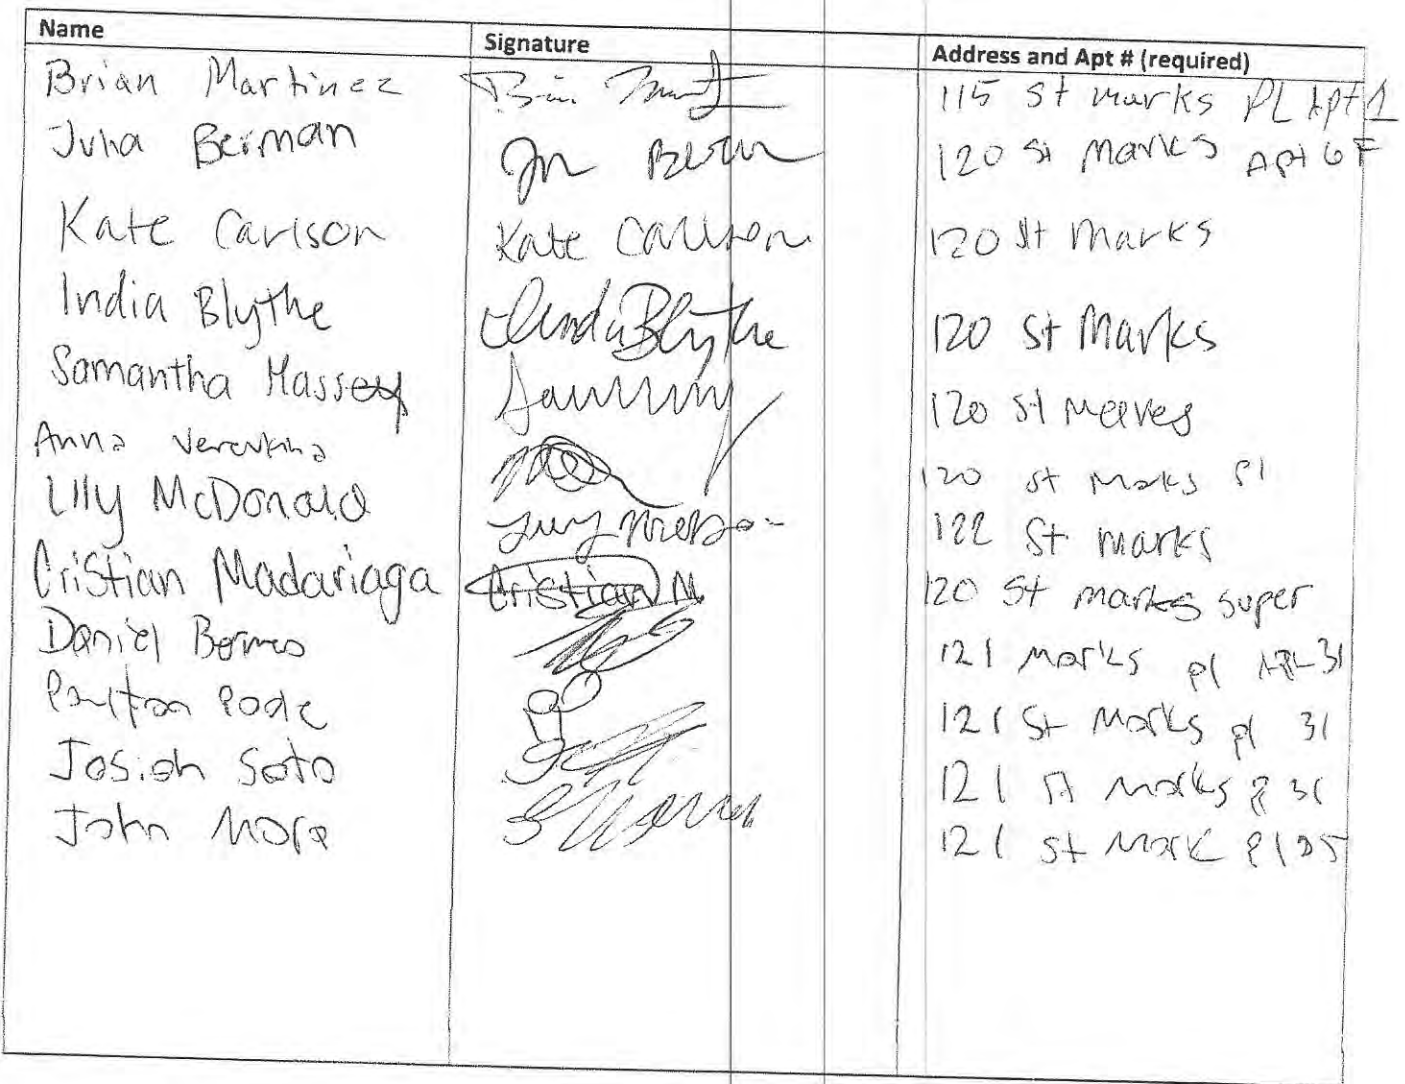 Name Signature Address and Apt # (required)
Brian Martinez 115 St marks PL Apt 1
Julia Berman 120 St Marks Apt 6F
Kate Carlson Kate Carlson 120 St Marks
India Blythe India Blythe 120 St Marks
Samantha Massey 120 St
Anna 120 St Marks Pl
Lily McDonald 122 St marks
Cristian Madariaga Cristian M. 120 St marks super
Daniel 121 Marks pl Apt 31
121 St Marks pl 31
Josiah Soto 121 St Marks P 31
John Mora 121 St Mark Pl